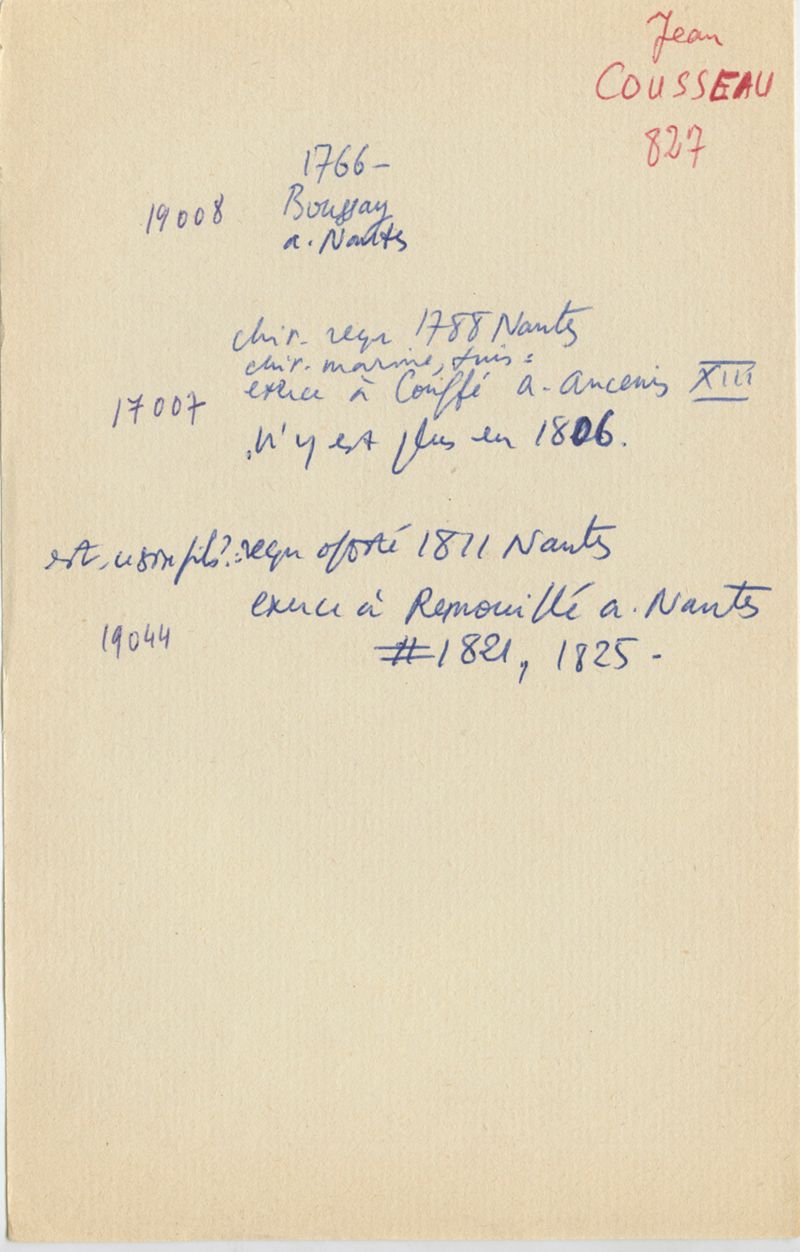 Jean
COUSSEAU
827
1766-
19008 Boussay
a. Nantes
chir. reçu 1788 Nantes
chir. marine, puis:
exerce à Couffé a. Ancenis XIII
17007
n'y est plus en 1806.
est-ce son fils?: reçu offté 1811 Nantes
exerce à Remouillé a. Nantes
19044
1821, 1825-